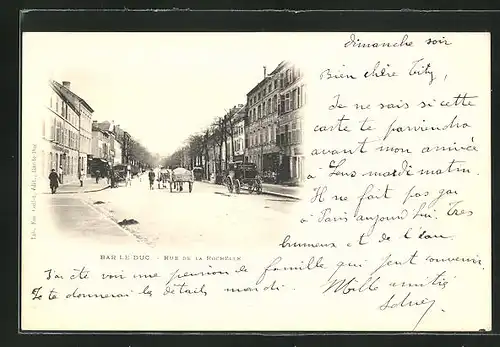 dimanche soir
Bien chère Tity,
Je ne sais si cette
carte te parviendra
avant mon arrivée
à Sens mardi matin.
Il ne fait pas gai
à Paris aujourd'hui. Très
brumeux et de l'eau.
J'ai été voir une pension de famille qui peut convenir.
Je te donnerai les détails mardi. Mille amitiés
BAR LE DUC - RUE DE LA ROCHELLE